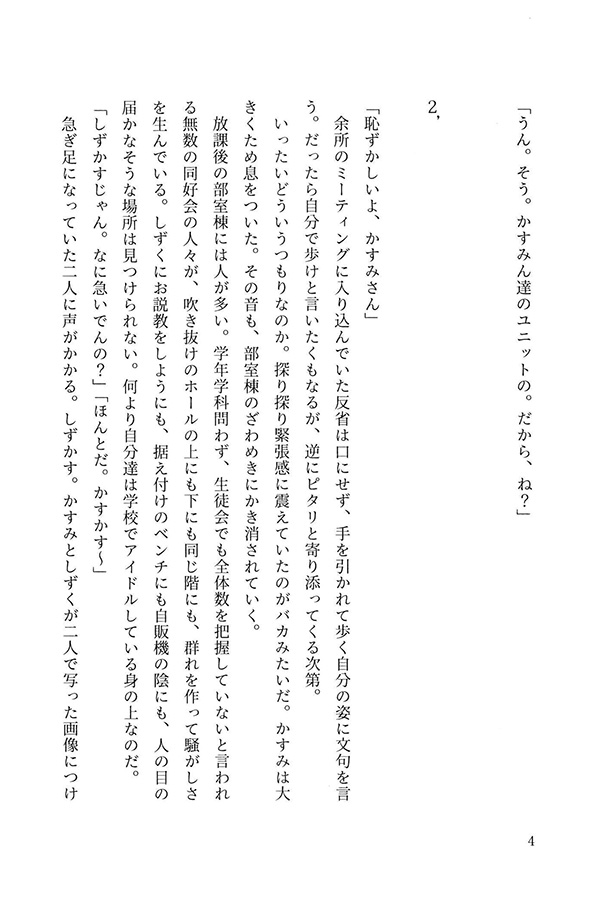 「うん。そう。かすみん達のユニットの。だから、ね？」
2,
「恥ずかしいよ、かすみさん」
余所のミーティングに入り込んでいた反省は口にせず、手を引かれて歩く自分の姿に文句を言
う。だったら自分で歩けと言いたくもなるが、逆にピタリと寄り添ってくる次第。
いったいどういうつもりなのか。探り探り緊張感に震えていたのがバカみたいだ。かすみは大
きくため息をついた。その音も、部室棟のざわめきにかき消されていく。
放課後の部室棟には人が多い。学年学科問わず、生徒会でも全体数を把握していないと言われ
る無数の同好会の人々が、吹き抜けのホールの上にも下にも同じ階にも、群れを作って騒がしさ
を生んでいる。しずくにお説教をしようにも、据え付けのベンチにも自販機の陰にも、人の目の
届かなそうな場所は見つけられない。何より自分達は学校でアイドルしている身の上なのだ。
「しずかすじゃん。なに急いでんの？」「ほんとだ。かすかす～」
急ぎ足になっていた二人に声がかかる。しずかす。かすみとしずくが二人で写った画像につけ
4